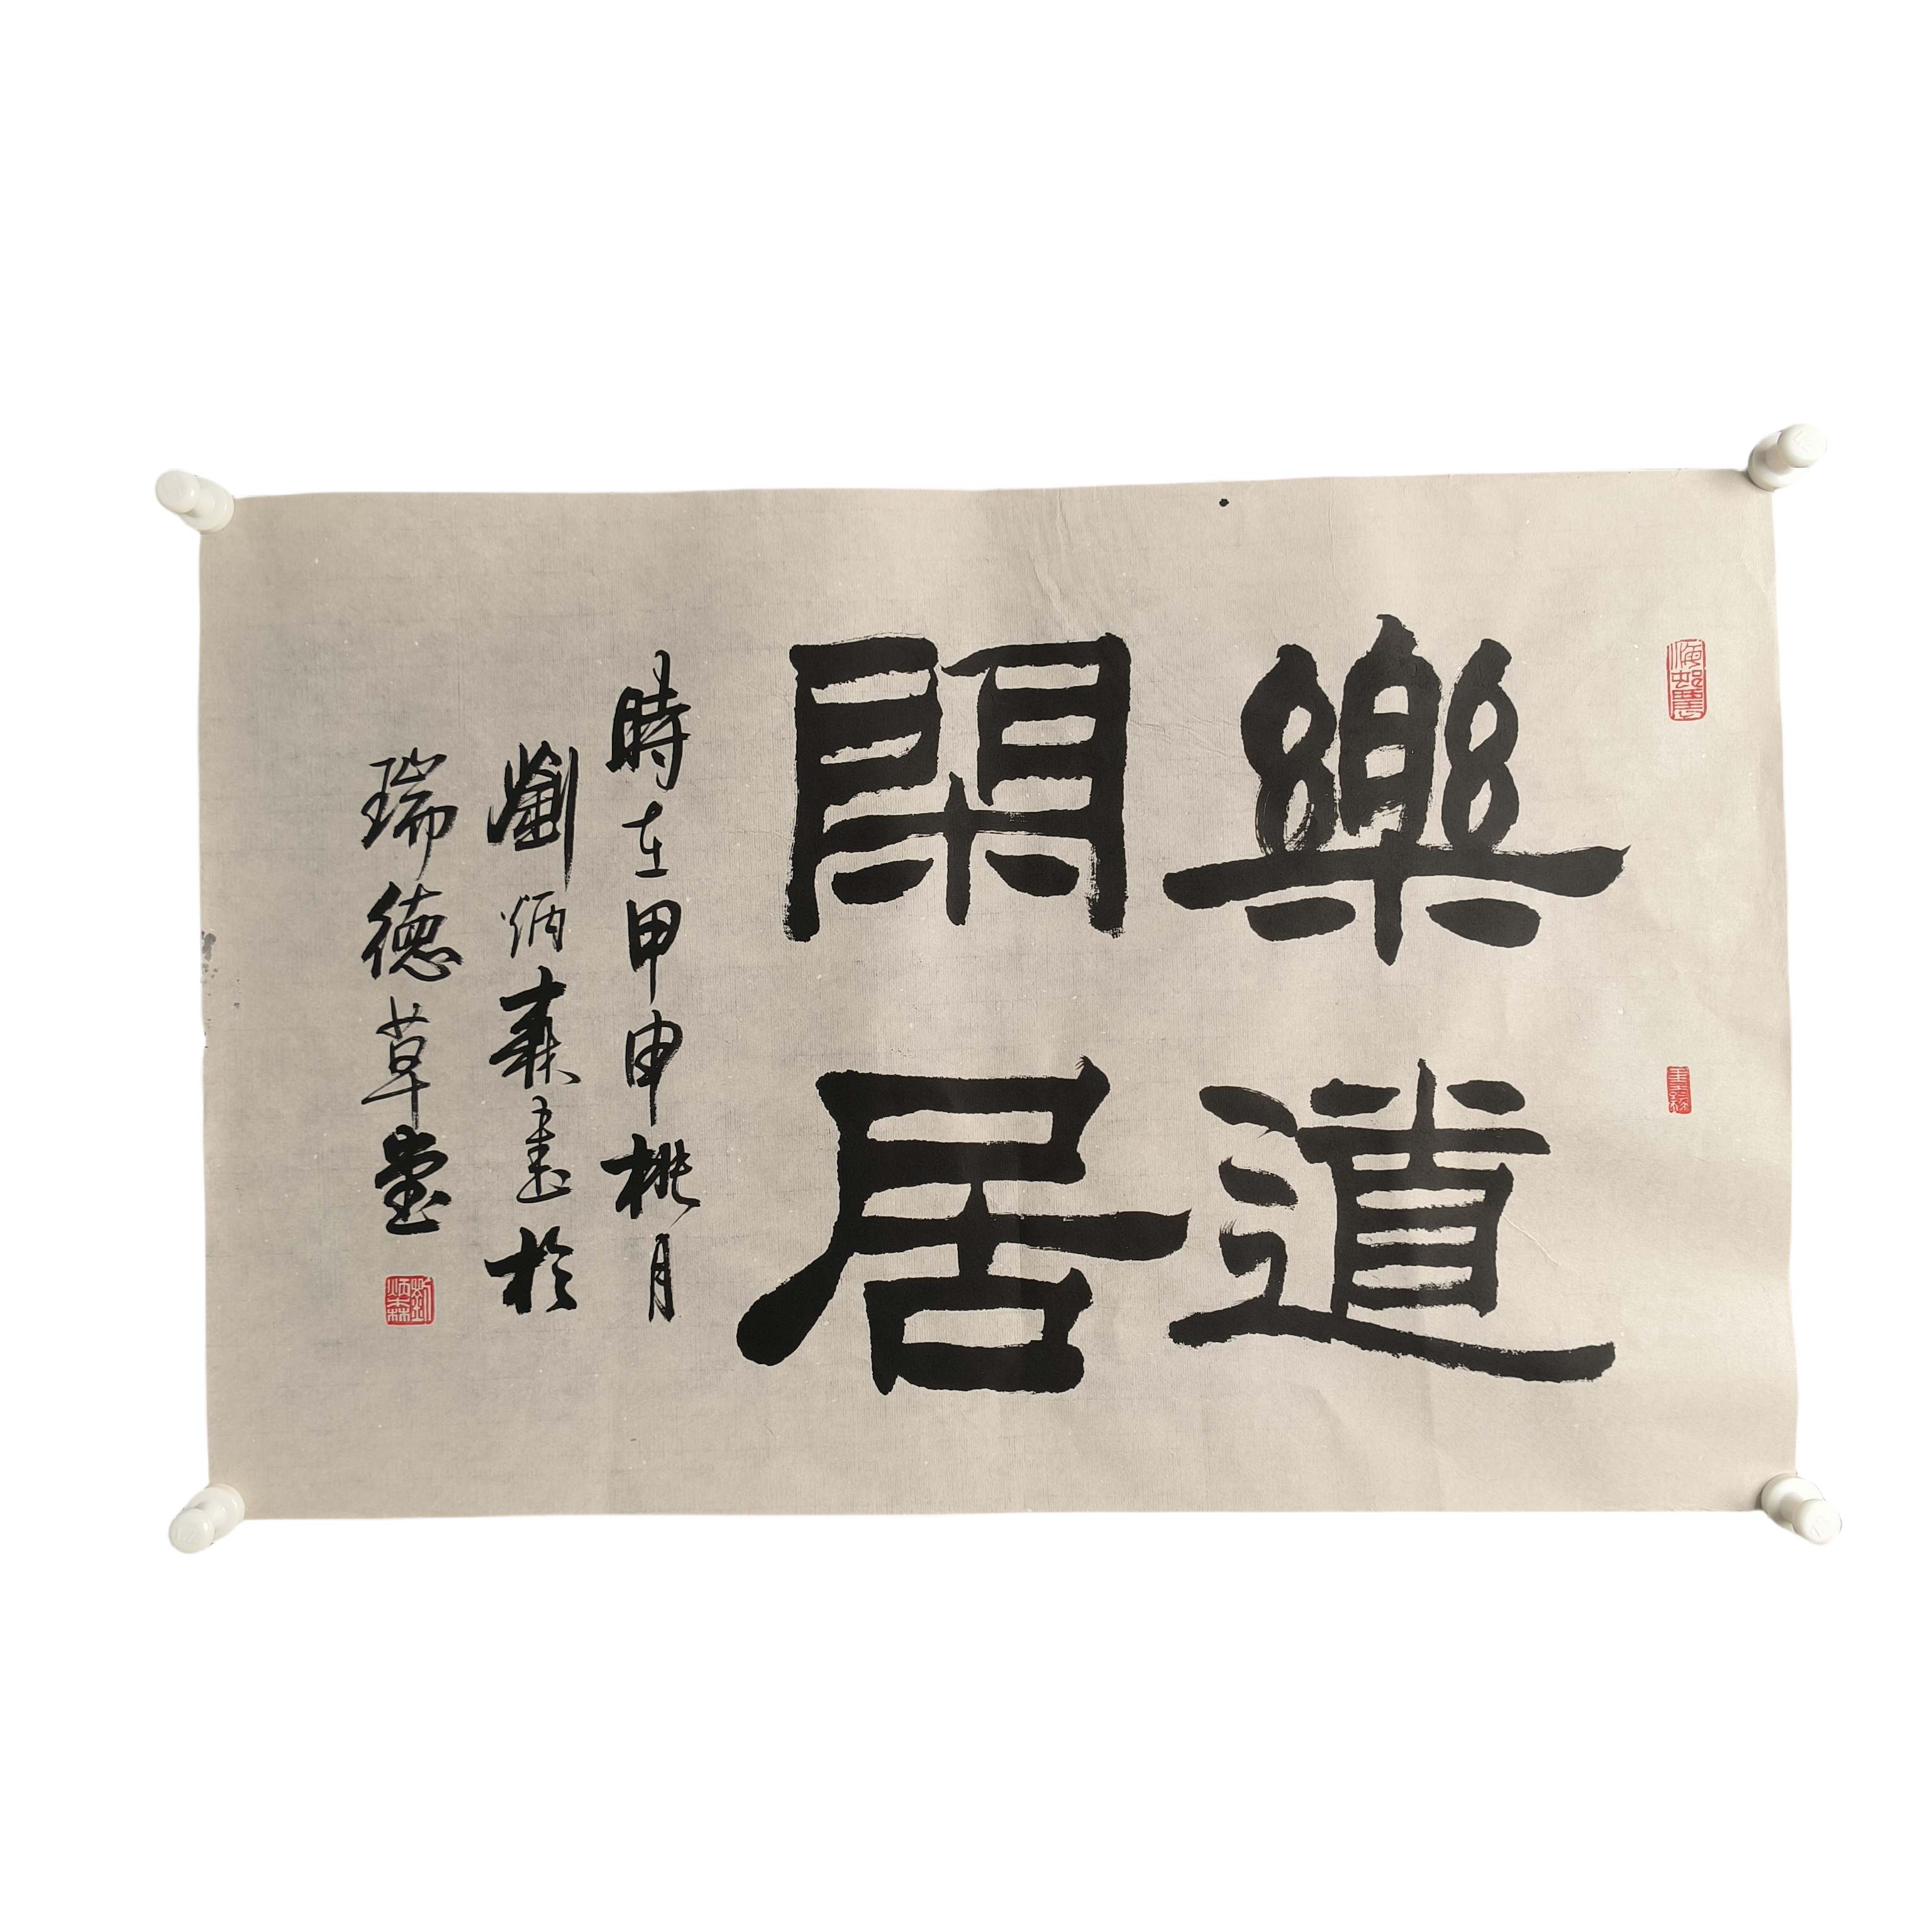 樂道
閑居
時在甲申桃月
劉炳森書於
瑞德草堂
劉炳森